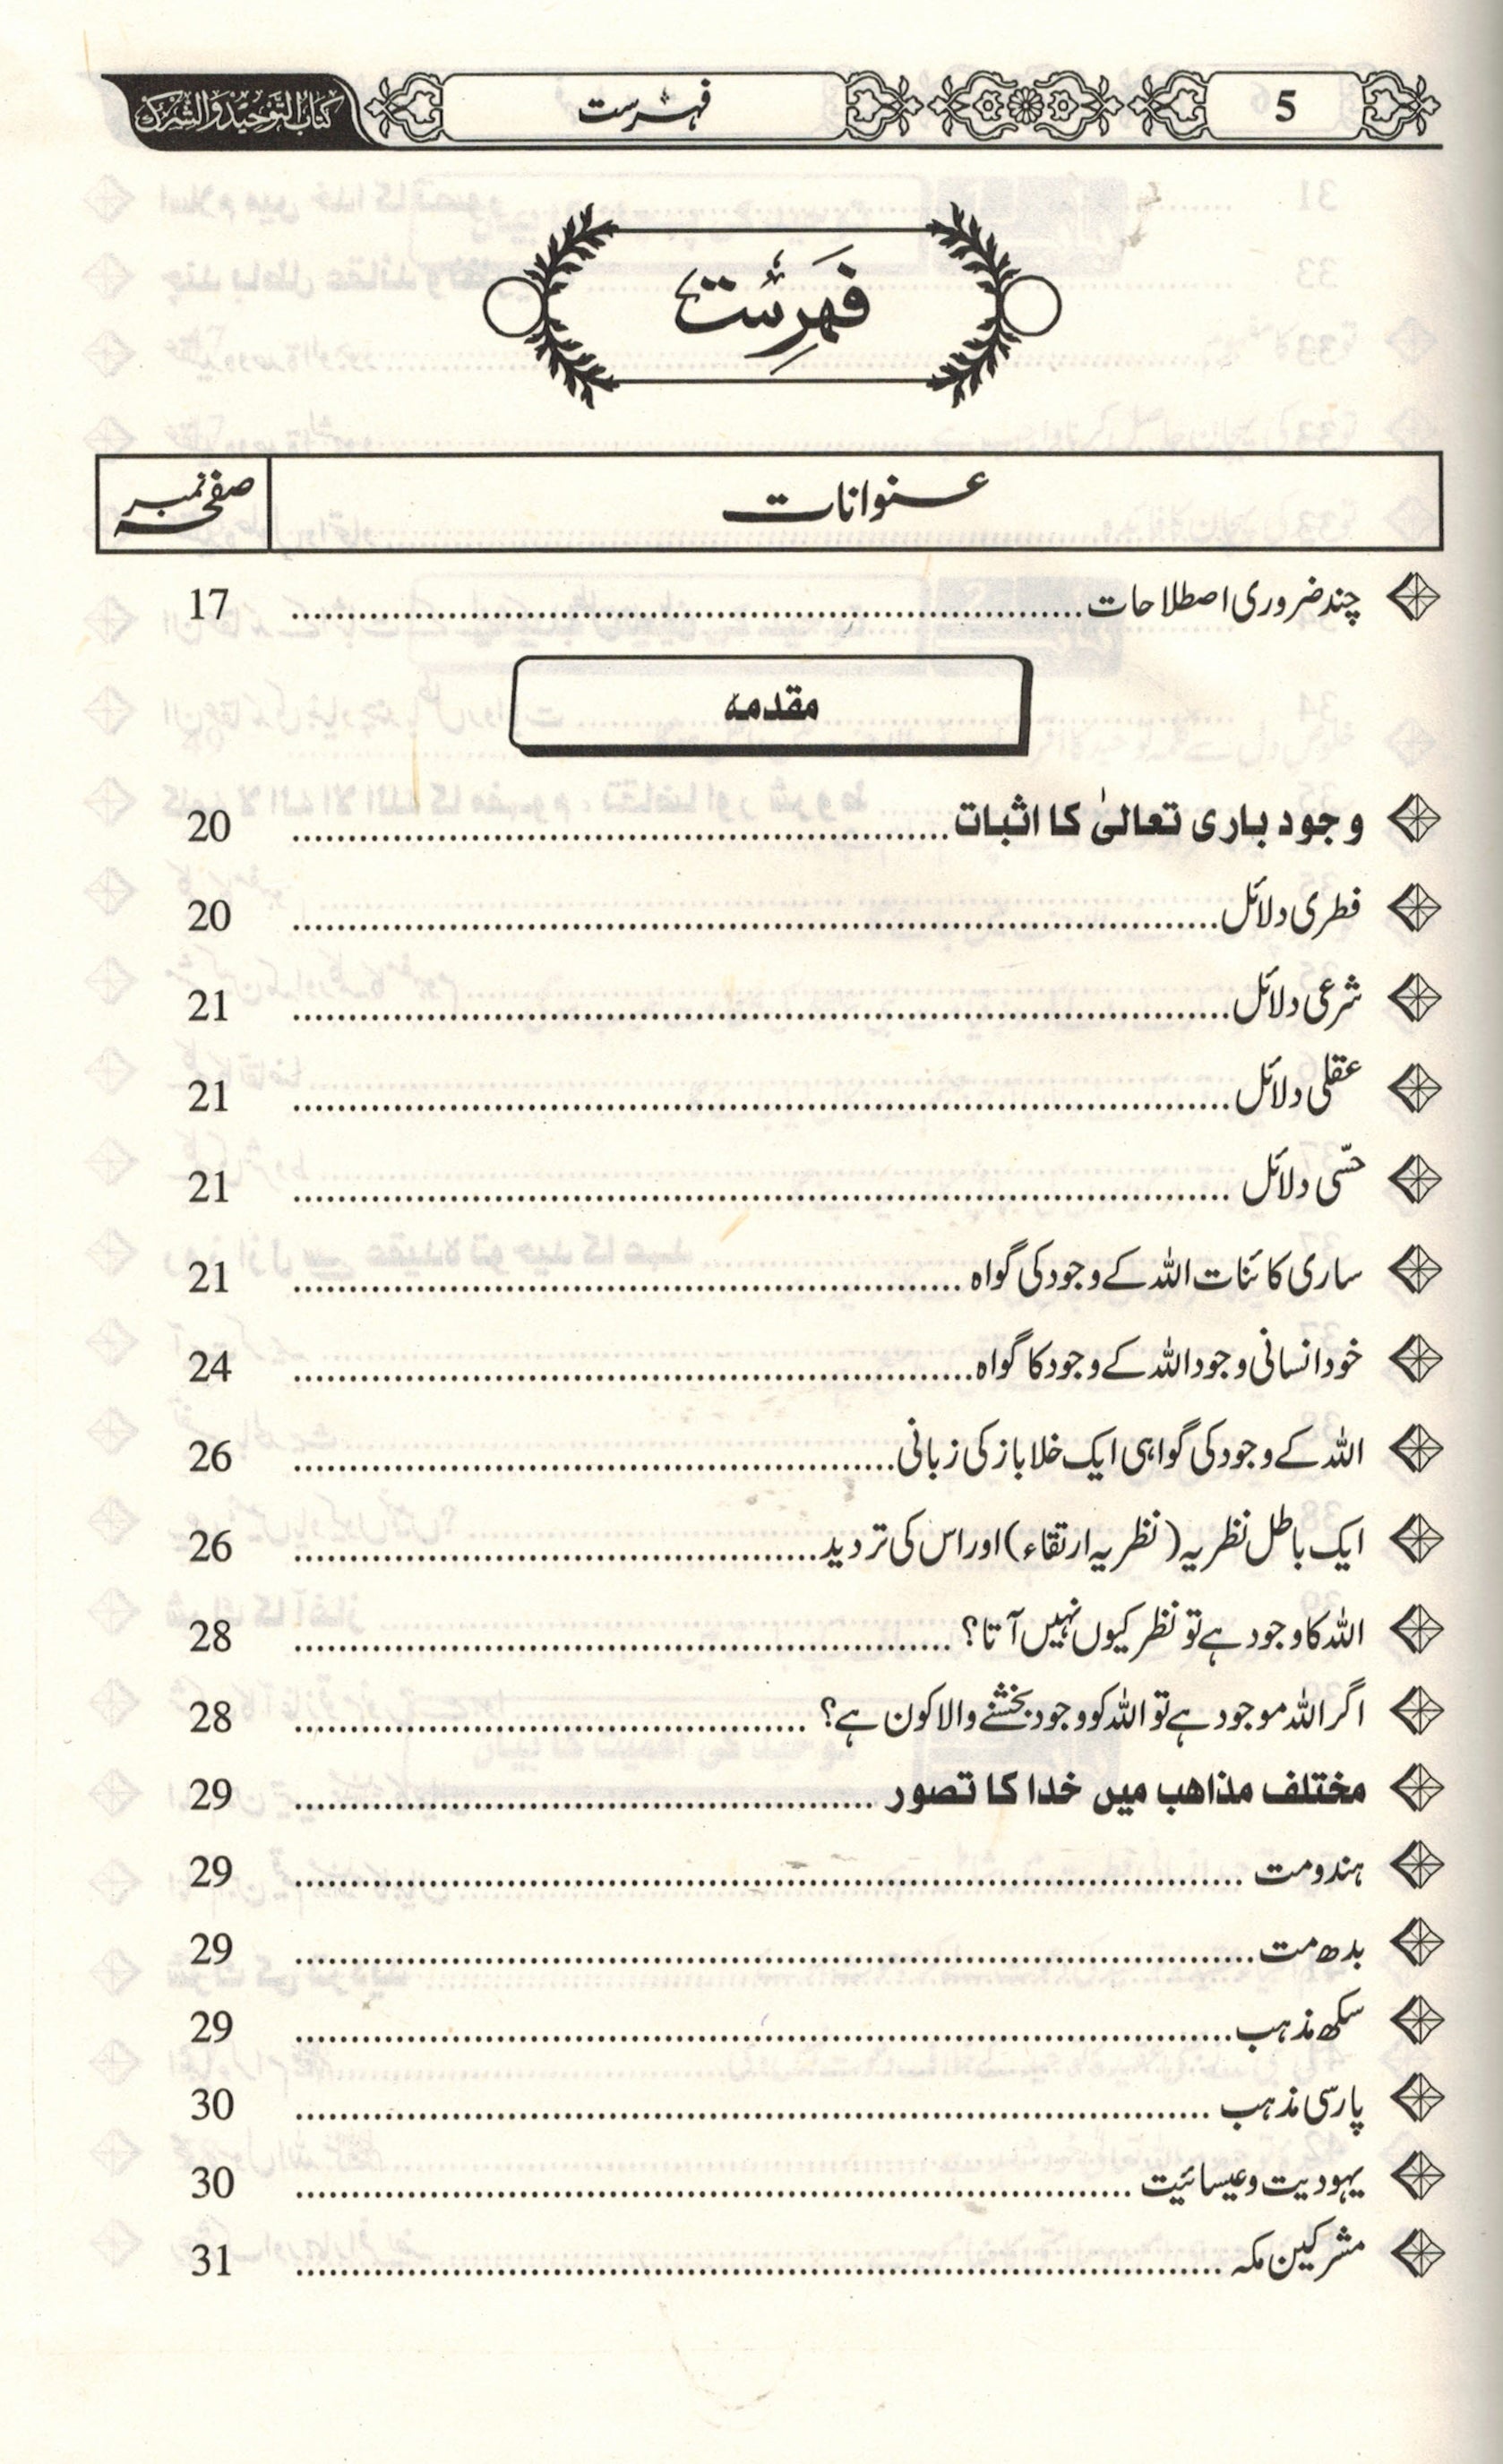 5 فہرست کتاب التوحید والشرک
فہرست
عنوانات صفحہ نمبر
چند ضروری اصطلاحات 17
مقدمه
وجود باری تعالیٰ کا اثبات 20
فطری دلائل 20
شرعی دلائل 21
عقلی دلائل 21
حسّی دلائل 21
ساری کائنات اللہ کے وجود کی گواہ 21
خود انسانی وجود اللہ کے وجود کا گواہ 24
اللہ کے وجود کی گواہی ایک خلا باز کی زبانی 26
ایک باطل نظریہ (نظریہ ارتقاء) اور اس کی تردید 26
اللہ کا وجود ہے تو نظر کیوں نہیں آتا؟ 28
اگر اللہ موجود ہے تو اللہ کو وجود بخشنے والا کون ہے؟ 28
مختلف مذاهب میں خدا کا تصور 29
ہندومت 29
بدھ مت 29
سکھ مذہب 29
پارسی مذہب 30
یہودیت و عیسائیت 30
مشرکین مکہ 31